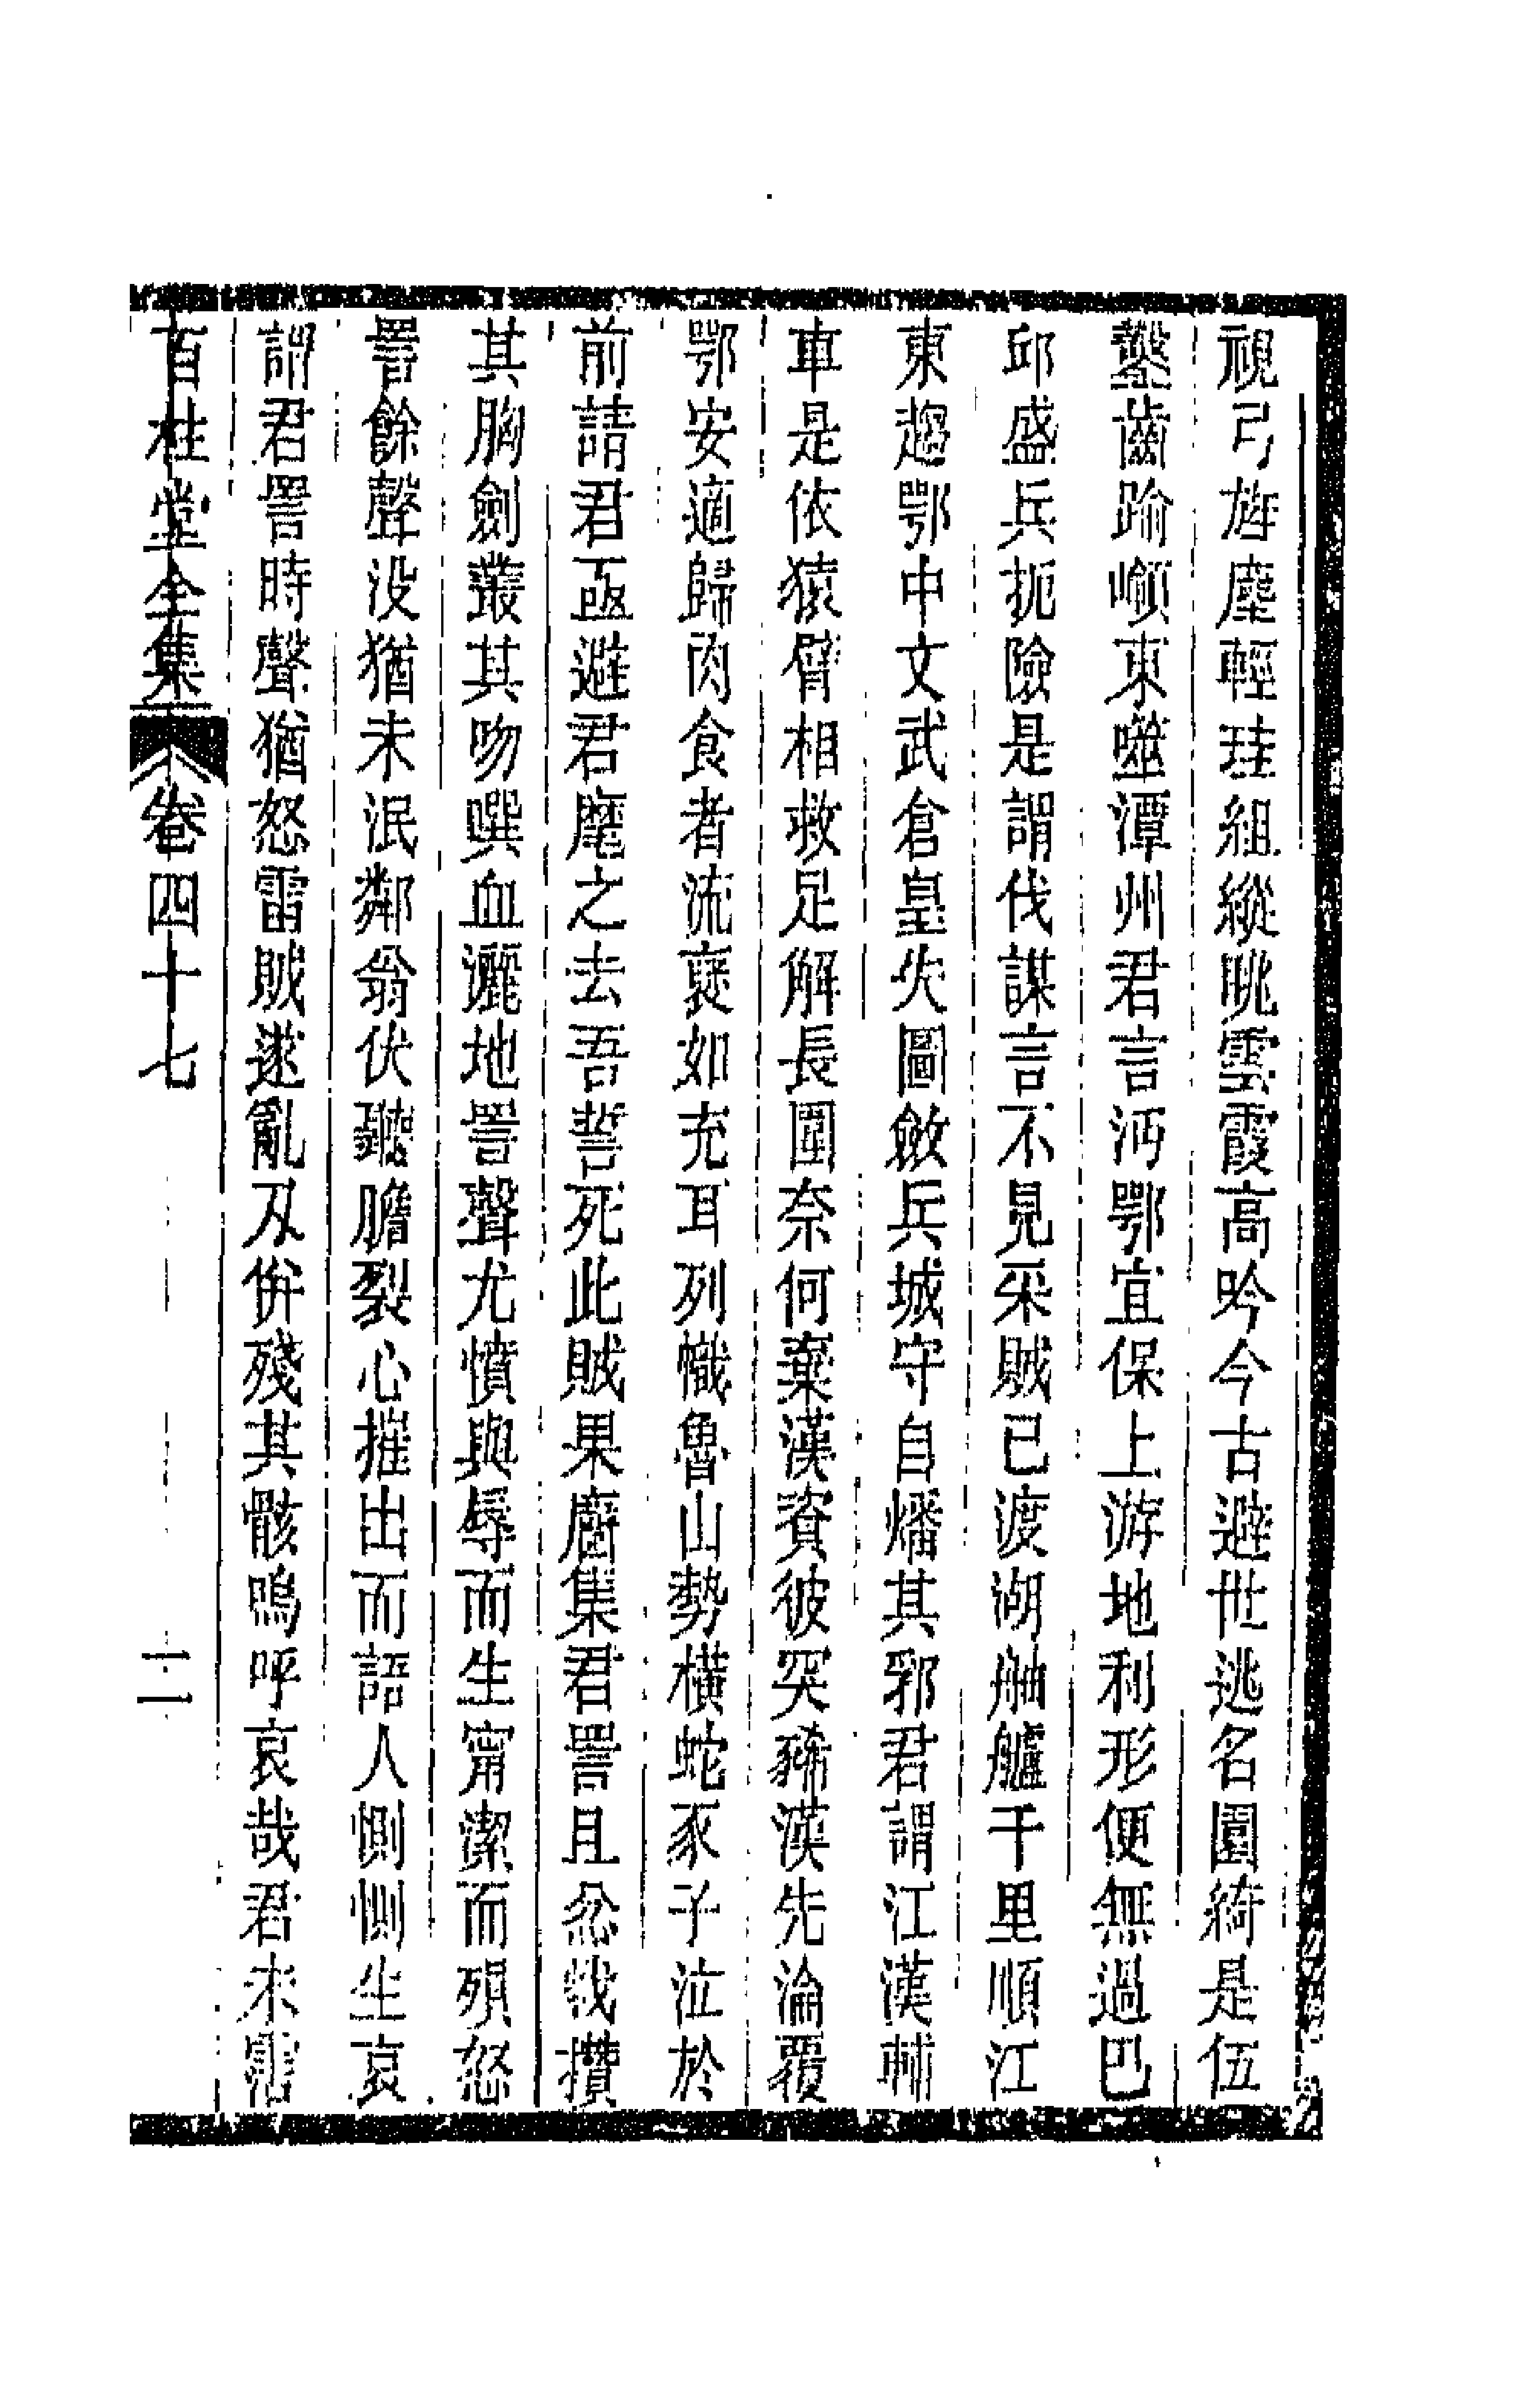 視弓旌塵輕珪組縱眺雲霞高吟今古避世逃名園綺是伍
鑿齒踰嶺東噬潭州君言沔鄂宜保上游地利形便無過巴
邱盛兵扼險是謂伐謀言不見采賊已渡湖舳艫千里順江
東趨鄂中文武倉皇失圖斂兵城守自燔其郛君謂江漢輔
車是依猿臂相救足解長圍奈何棄漢資彼突豨漢先淪覆
鄂安適歸肉食者流裦如充耳列幟魯山勢橫蛇豕子泣於
前請君亟避君麾之去吾誓死此賊果麕集君詈且忿戟攢
其胸劍叢其吻噀血灑地詈聲尤憤與辱而生甯潔而殞怒
詈餘聲没猶未泯鄰翁伏聽膽裂心摧出而語人惻惻生哀
謂君詈時聲猶怒雷賊遂亂刃併殘其骸嗚呼哀哉君未
百柱堂全集 卷四十七 二